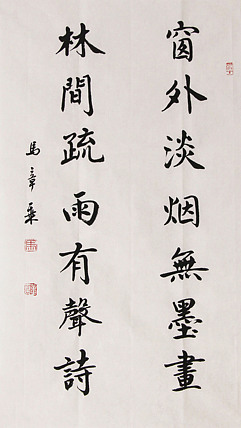 窗外淡烟無墨畫
林間疏雨有聲詩
馬章乘